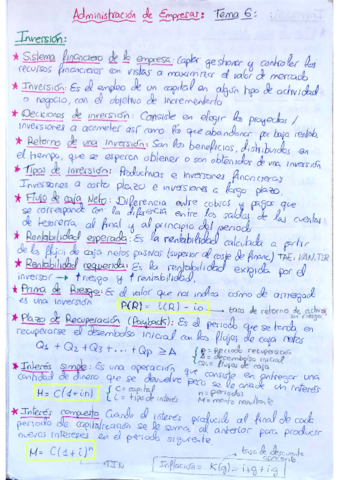 Administración de Empresas: Tema 6:
Inversión:
★ Sistema financiero de la empresa: captar gestionar y controlar los
recursos financieros en vistas a maximizar el valor de mercado
★ Inversión: Es el empleo de un capital en algún tipo de actividad
o negocio, con el objetivo de incrementarlo
★ Decisiones de inversión: Consiste en elegir los proyectos /
inversiones a acometer así como los que abandonar por baja rentab.
★ Retorno de una inversión: Son los beneficios, distribuidos en
el tiempo, que se esperan obtener o son obtenidos de una inversión
★ Tipos de inversión: Productivas e Inversiones financieras
Inversiones a corto plazo e inversiones a largo plazo
★ Flujo de caja Neto: Diferencia entre cobros y pagos que
se corresponde con la diferencia entre los saldos de las cuentas
de tesorería al final y al principio del periodo
★ Rentabilidad esperada: Es la rentabilidad calculada a partir
de los flujos de caja netos pasivos (superior al coste de financ) TAE, VAN, TIR
★ Rentabilidad requerida: Es la rentabilidad exigida por el
inversor → ↑ riesgo y ↑ rentabilidad.
★ Prima de Riesgo: Es el valor que nos indica cómo de arriesgada
es una inversión P(R) = i(R) - io tasa de retorno de activo
riesgo
★ Plazo de Recuperación (Payback): Es el periodo que se tarda en
recuperarse el desembolso inicial con los flujos de caja netos
Q1 + Q2 + Q3 + ... + Qp ≥ A
P = periodo recuperación
A = desembolso inicial
Qi = flujos de caja
★ Interés simple: Es una operación que consiste en entregar una
cantidad de dinero que se devuelve pero se le añade un interés
M = C(1+in)
C = capital
i = tipo de interés
n = periodos
M = monto resultante
★ Interés compuesto Cuando el interés producido al final de cada
periodo de capitalización se le suma al anterior para producir
nuevos intereses en el periodo siguiente.
M = C(1+i)^n
TIN
tasa de descuento
Inflación = K(g) = i+g+ig